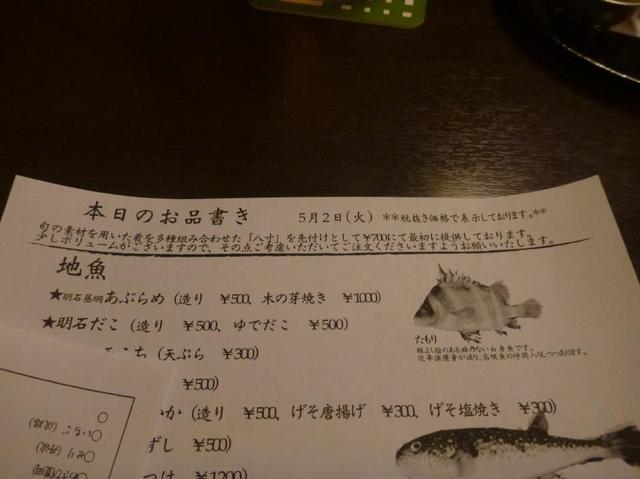 本日のお品書き　５月２日（火）　＊＊税抜き価格で表示しております。＊＊
旬の素材を用いた肴を多種組み合わせた「八寸」を先付けとして￥700にて最初に提供しております。
少しボリュームがございますので、その点ご考慮いただいてご注文くださいますようお願いいたします。
地魚
★明石昼網あぶらめ（造り　￥500、木の芽焼き　￥1000）
★明石だこ（造り　￥500、ゆでだこ　￥500）
こち（天ぷら　￥300）
￥500）
いか（造り　￥500、げそ唐揚げ　￥300、げそ塩焼き　￥300）
ずし　￥500）
つけ　￥1200）
たもり
程よく脂のある癖のない白身魚です。
近年漁獲量が減り、高級魚の仲間入りしつつあります。